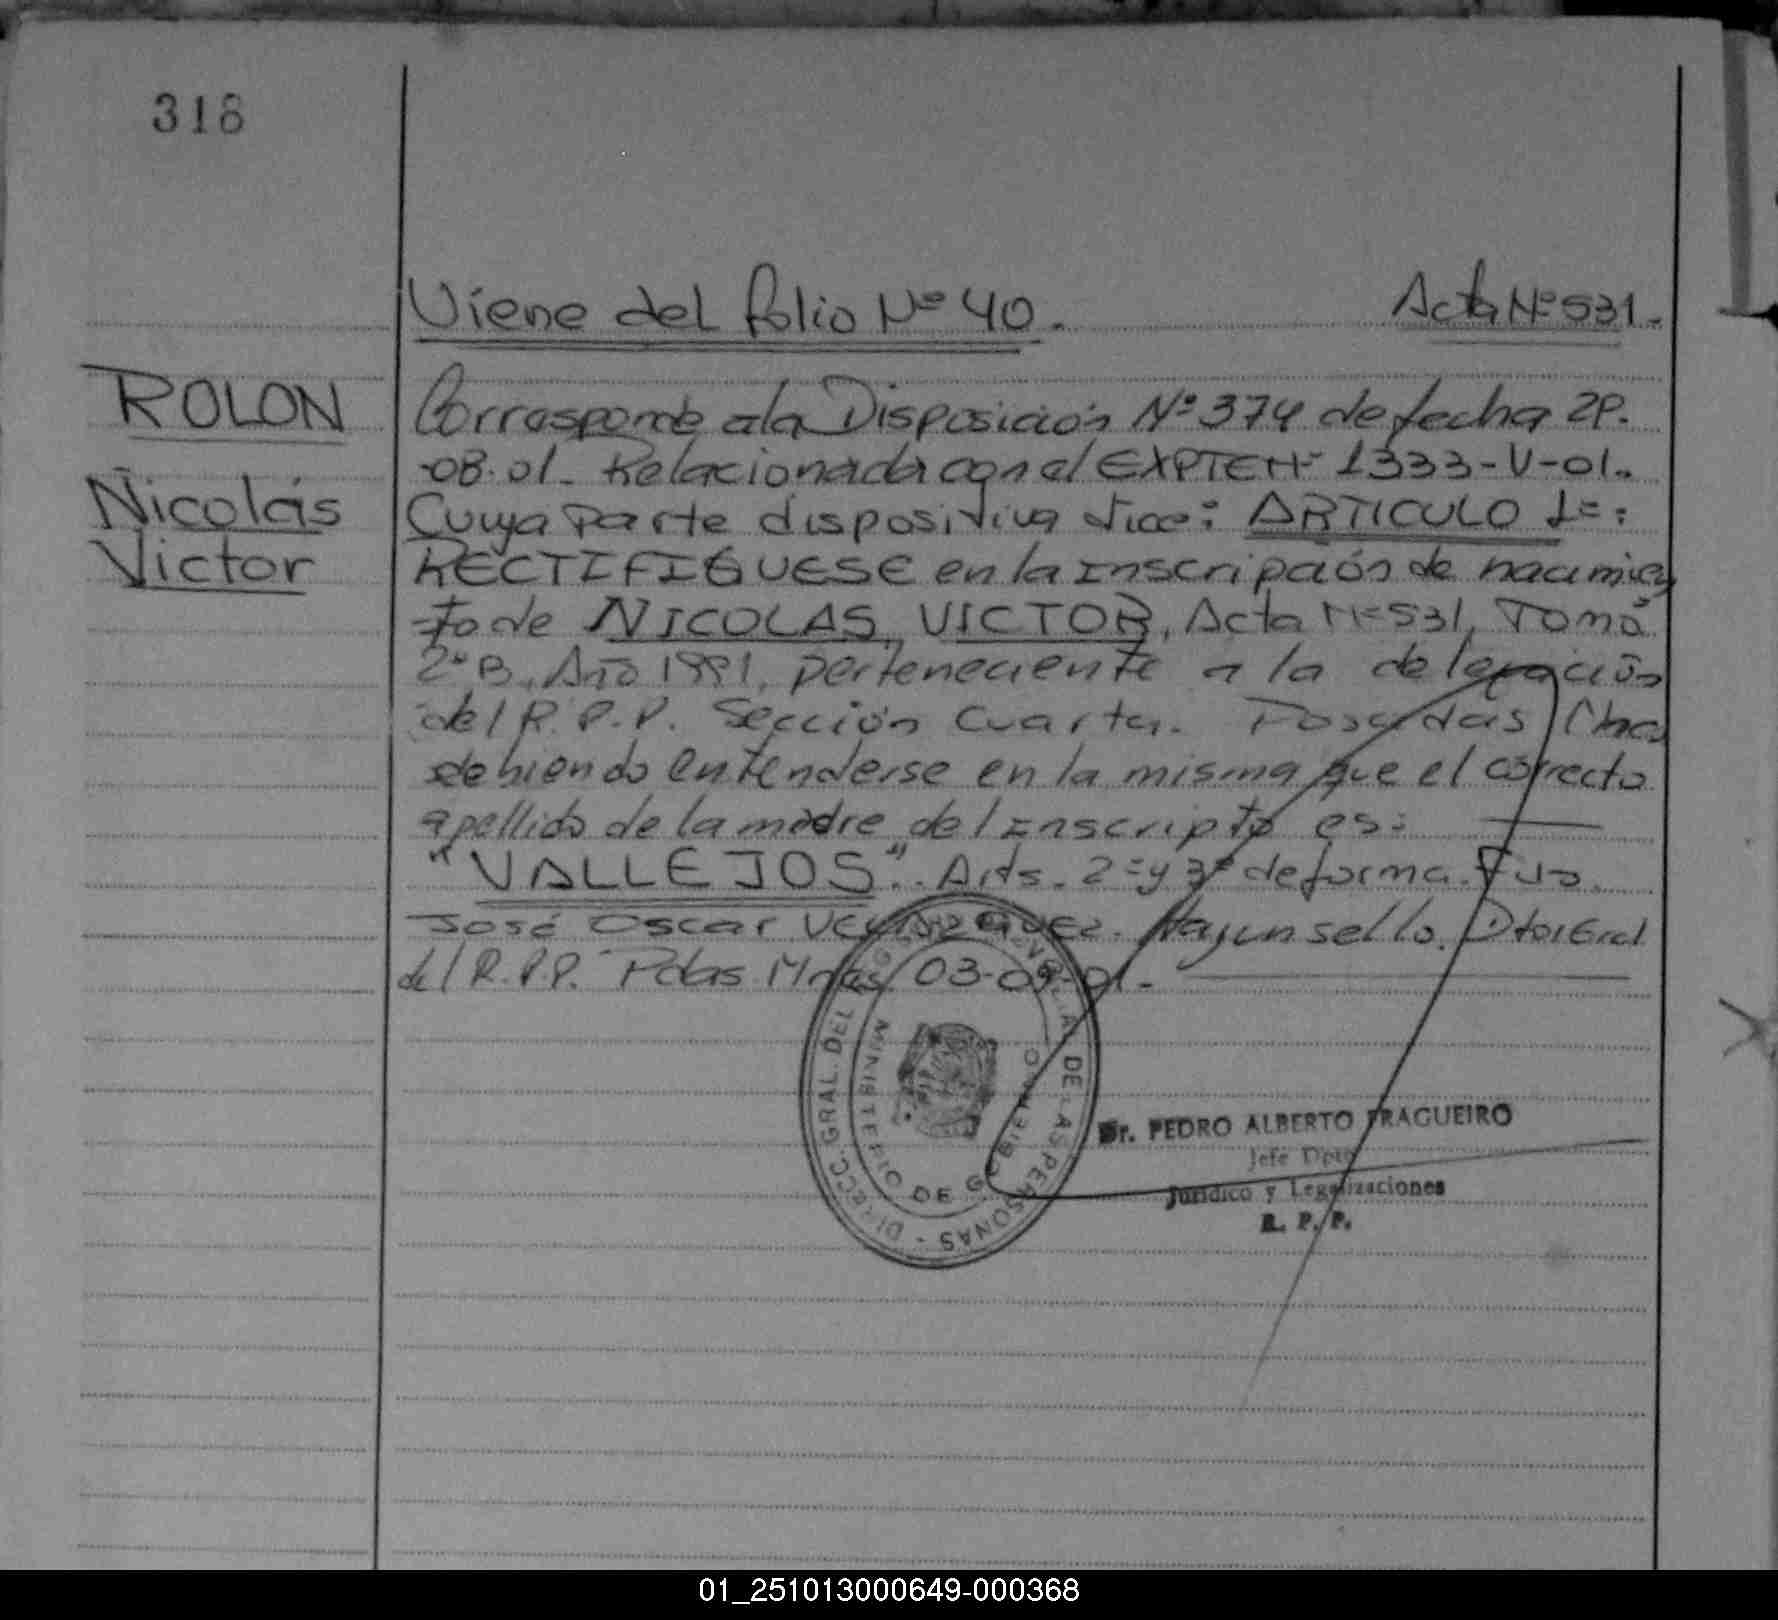 318
Viene del folio Nº 40.
Acta Nº 531.-
ROLON
Nicolás
Victor
Corresponde a la Disposición Nº 374 de fecha 29.
-08.01- Relacionada con el EXPTE Nº 1333-V-01.-
Cuya parte dispositiva dice: ARTICULO 1º:
RECTIFIQUESE en la inscripción de nacimien
to de NICOLAS, VICTOR, Acta Nº 531, Tomo
2º B, Año 1991, perteneciente a la delegación
del R.P.P. Sección Cuarta. Posadas Mnes
debiendo entenderse en la misma que el correcto
apellido de la madre del inscripto es:
"VALLEJOS". Arts. 2º y 3º de forma. Fdo.
José Oscar Velazquez. Hay un sello. Dtor Gral
del R.P.P. Pdas. Mnes 03-09-01.-
DIRECC. GRAL. DEL DE LAS PERSONAS -
MINISTERIO DE GOBIERNO
Dr. PEDRO ALBERTO FRAGUEIRO
Jefe Dpto
Jurídico y Legalizaciones
R. P. P.
01_251013000649-000368